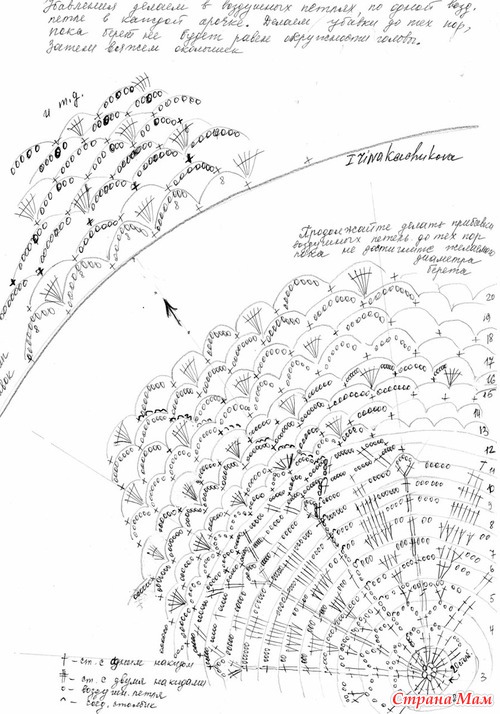 Убавления делаем в воздушных петлях, по одной возд.
петле в каждой арочке. Делаем убавки до тех пор,
пока берет не будет равен окружности головы.
Затем вяжем околышек
и т.д.
8
8
8
Irina Korohukova
Продолжайте делать прибавки
воздушных петель до тех пор
пока не достигните желаемого
диаметра
берета
20
19
18
17
16
15
14
13
12
11
10
9
8
7
6
5
4
3
ст. с одним накидом
ст. с двумя накидами
воздушн. петля
соед. столбик
Страна Мам